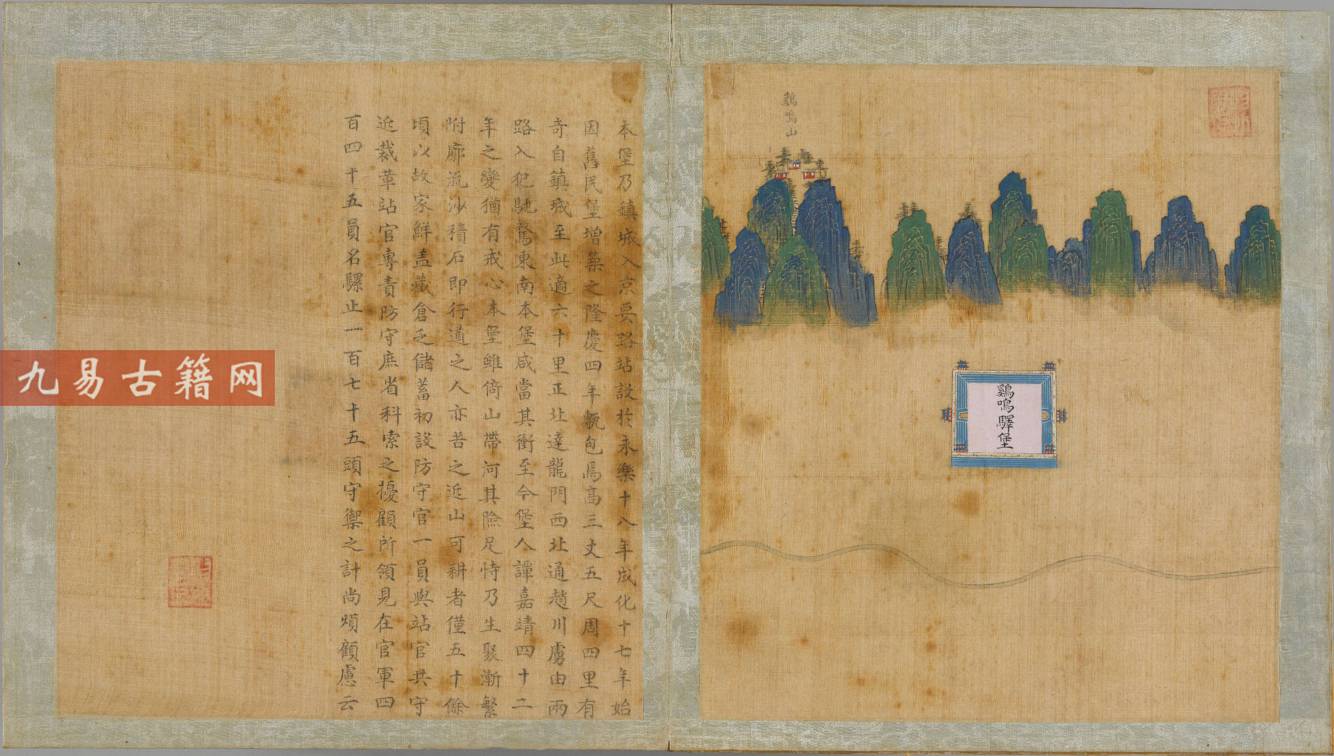 鷄鳴山
鷄鳴驛堡
本堡乃鎮城入京要路站設於永樂十八年成化十七年始
因舊民堡增築之隆慶四年甎包焉高三丈五尺周四里有
奇自鎮城至此適六十里正北達龍門西北通趙川虜由兩
路入犯馳騖東南本堡咸當其衝至今堡人譚嘉靖四十二
年之變猶有戒心本堡雖倚山帶河其險足恃乃生聚漸繁
附廓流沙積石即行道之人亦苦之近山可耕者僅五十餘
頃以故家鮮蓋藏倉乏儲蓄初設防守官一員與站官共守
近裁革站官專責防守庶省科索之擾顧所領見在官軍四
百四十五員名騾止一百七十五頭守禦之計尚煩顧慮云
九易古籍网